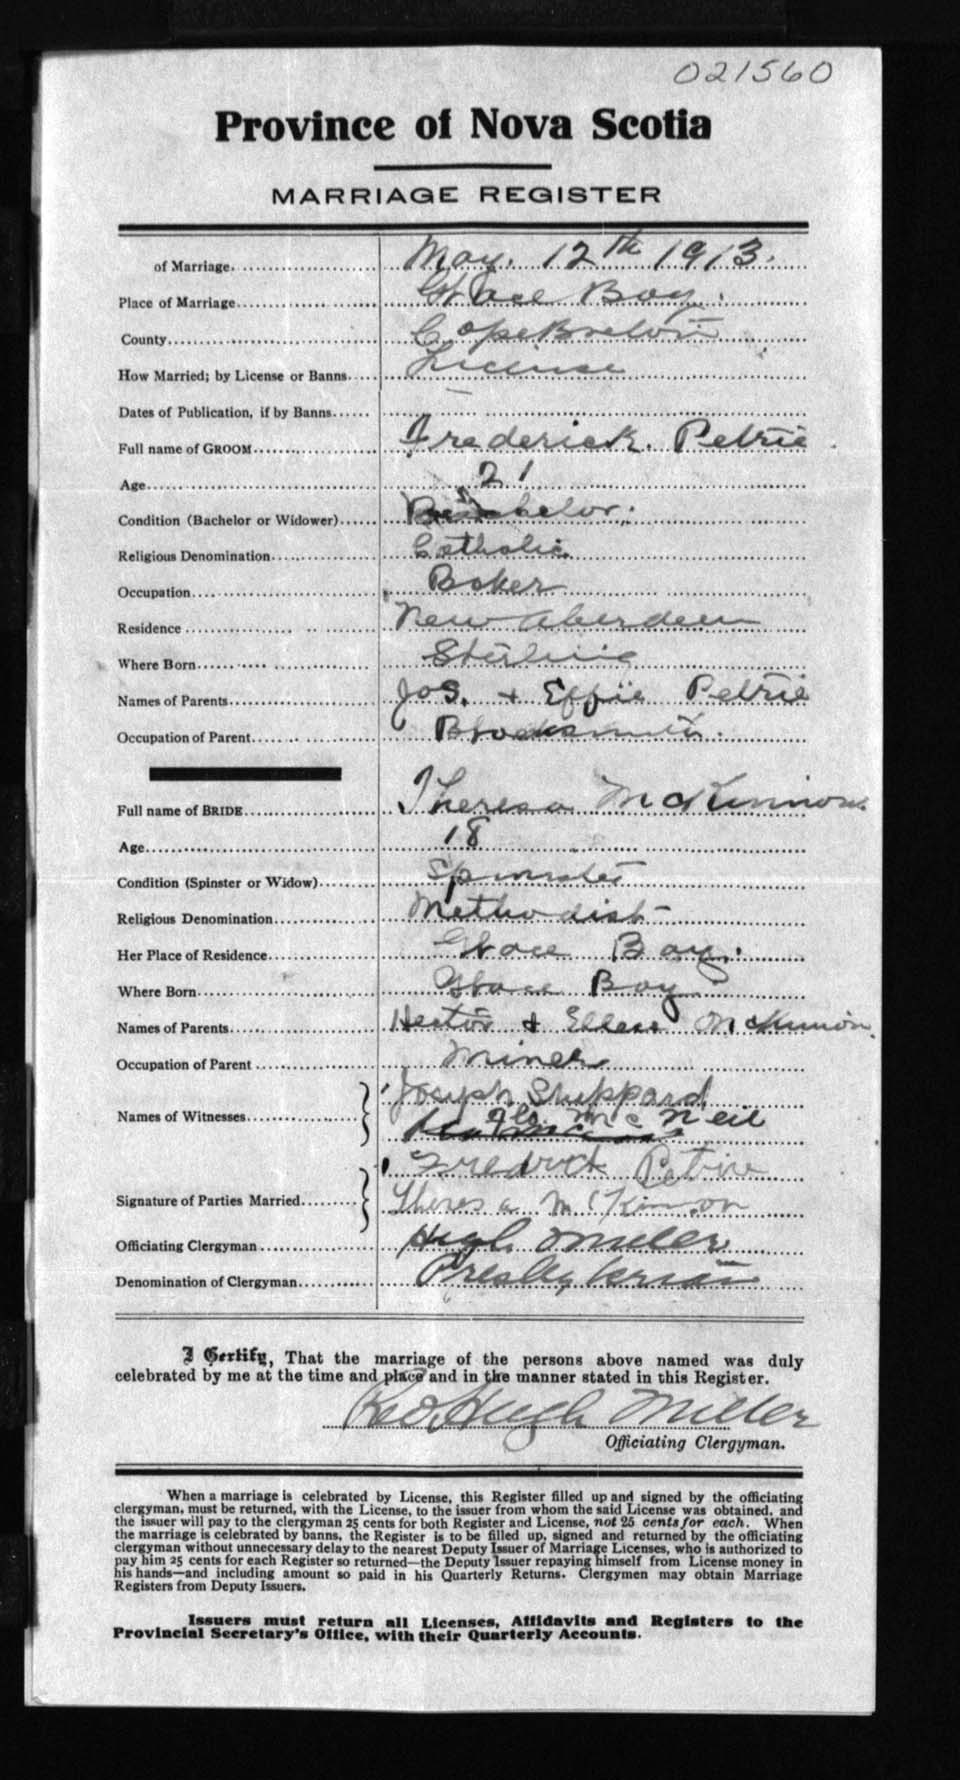 021560
Province of Nova Scotia
MARRIAGE REGISTER
of Marriage May. 12th 1913.
Place of Marriage Glace Bay.
County Cape Breton
How Married; by License or Banns License
Dates of Publication, if by Banns —
Full name of GROOM Frederick Petrie
Age 21
Condition (Bachelor or Widower) Bachelor.
Religious Denomination Catholic
Occupation Baker
Residence New Aberdeen
Where Born Sterling
Names of Parents Jos. + Effie Petrie
Occupation of Parent Blacksmith.
Full name of BRIDE Theresa McKinnon
Age 18
Condition (Spinster or Widow) Spinster
Religious Denomination Methodist
Her Place of Residence Glace Bay.
Where Born Glace Bay
Names of Parents Hector + Ellen McKinnon
Occupation of Parent Miner
Names of Witnesses Joseph Shappard
McNeil
Signature of Parties Married Fredrick Petrie
Theresa McKinnon
Officiating Clergyman Hugh Miller
Denomination of Clergyman Presbyterian
I Certify, That the marriage of the persons above named was duly
celebrated by me at the time and place and in the manner stated in this Register.
Rev. Hugh Miller
Officiating Clergyman.
When a marriage is celebrated by License, this Register filled up and signed by the officiating
clergyman, must be returned, with the License, to the issuer from whom the said License was obtained, and
the issuer will pay to the clergyman 25 cents for both Register and License, not 25 cents for each. When
the marriage is celebrated by banns, the Register is to be filled up, signed and returned by the officiating
clergyman without unnecessary delay to the nearest Deputy Issuer of Marriage Licenses, who is authorized to
pay him 25 cents for each Register so returned—the Deputy Issuer repaying himself from License money in
his hands—and including amount so paid in his Quarterly Returns. Clergymen may obtain Marriage
Registers from Deputy Issuers.
Issuers must return all Licenses, Affidavits and Registers to the
Provincial Secretary's Office, with their Quarterly Accounts.